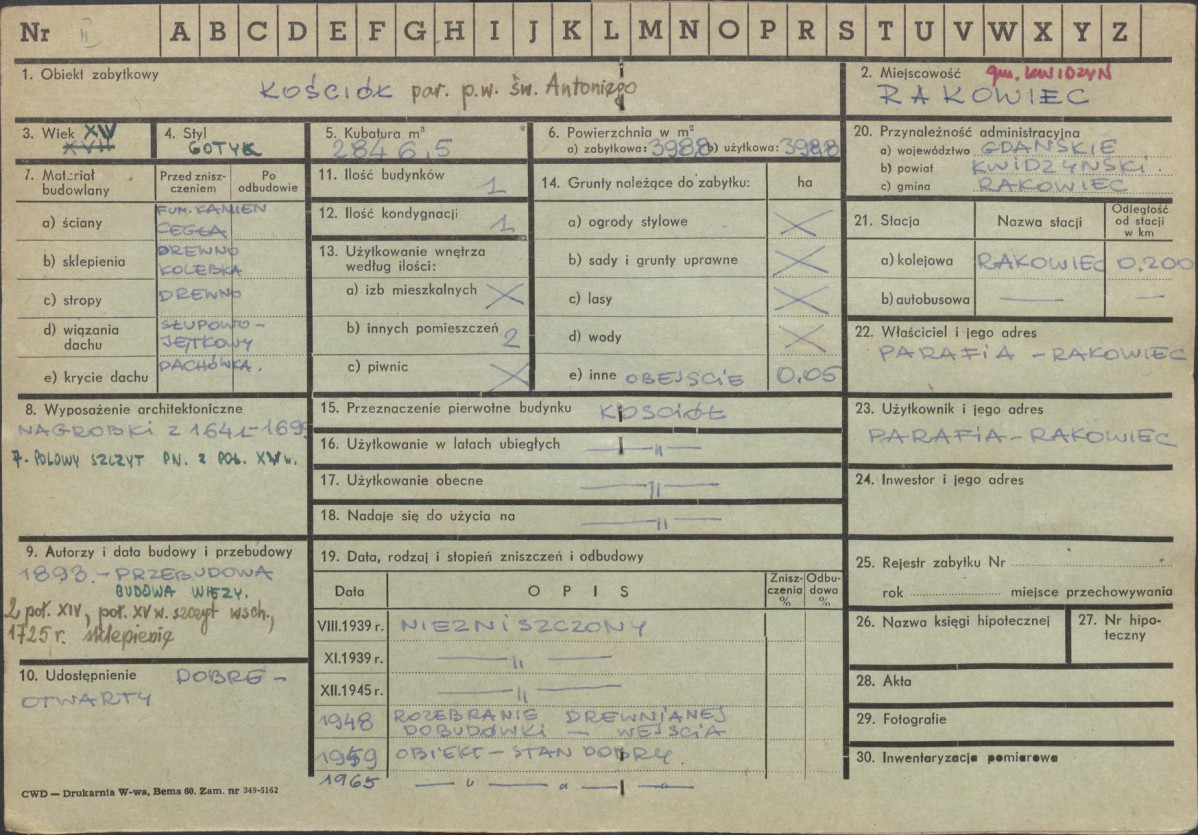 Nr II A B C D E F G H I J K L M N O P R S T U V W X Y Z
1. Obiekt zabytkowy
KOŚCIÓŁ par. p.w. św. Antoniego
2. Miejscowość gm. KWIDZYŃ
RAKOWIEC
3. Wiek XIV
XVII
4. Styl
GOTYK
5. Kubatura m³
2846,5
6. Powierzchnia w m²
a) zabytkowa: 398,8 b) użytkowa: 398,8
20. Przynależność administracyjna
a) województwo GDAŃSKIE
b) powiat KWIDZYŃSKI.
c) gmina RAKOWIEC
7. Materiał budowlany
Przed zniszczeniem
Po odbudowie
a) ściany FUN. KAMIEN
CEGŁA
b) sklepienia DREWNO
KOLEBKA
c) stropy DREWNO
d) wiązania dachu SŁUPOWO-
JĘTKOWY
e) krycie dachu DACHÓWKA.
11. Ilość budynków 1
12. Ilość kondygnacji 1
13. Użytkowanie wnętrza
według ilości:
a) izb mieszkalnych X
b) innych pomieszczeń 2
c) piwnic X
14. Grunty należące do zabytku: ha
a) ogrody stylowe X
b) sady i grunty uprawne X
c) lasy X
d) wody X
e) inne OBEJSCIE 0.05
21. Stacja
Nazwa stacji
Odległość od stacji w km
a) kolejowa RAKOWIEC 0.200
b) autobusowa — —
22. Właściciel i jego adres
PARAFIA - RAKOWIEC
8. Wyposażenie architektoniczne
NAGROBKI Z 1641-1699
7-POLOWY SZCZYT PN. Z POŁ. XV w.
15. Przeznaczenie pierwotne budynku KOSCIÓŁ
16. Użytkowanie w latach ubiegłych — " —
17. Użytkowanie obecne — " —
18. Nadaje się do użycia na — " —
23. Użytkownik i jego adres
PARAFIA - RAKOWIEC
24. Inwestor i jego adres
9. Autorzy i data budowy i przebudowy
1893.- PRZEBUDOWA
BUDOWA WIEŻY.
2 poł. XIV, poł. XV w. szczyt wsch.,
1725 r. sklepienie
10. Udostępnienie DOBRE -
OTWARTY
19. Data, rodzaj i stopień zniszczeń i odbudowy
Data
OPIS
Zniszczenia %
Odbudowa %
VIII.1939 r. NIEZNISZCZONY
XI.1939 r. — " —
XII.1945 r. — " —
1948 ROZEBRANIE DREWNIANEJ
DOBUDÓWKI - WEJŚCIA
1959 OBIEKT - STAN DOBRY.
1965 — " — " — " —
25. Rejestr zabytku Nr
rok miejsce przechowywania
26. Nazwa księgi hipotecznej
27. Nr hipoteczny
28. Akta
29. Fotografie
30. Inwentaryzacja pomiarowa
CWD — Drukarnia W-wa, Bema 60. Zam. nr 349-5162